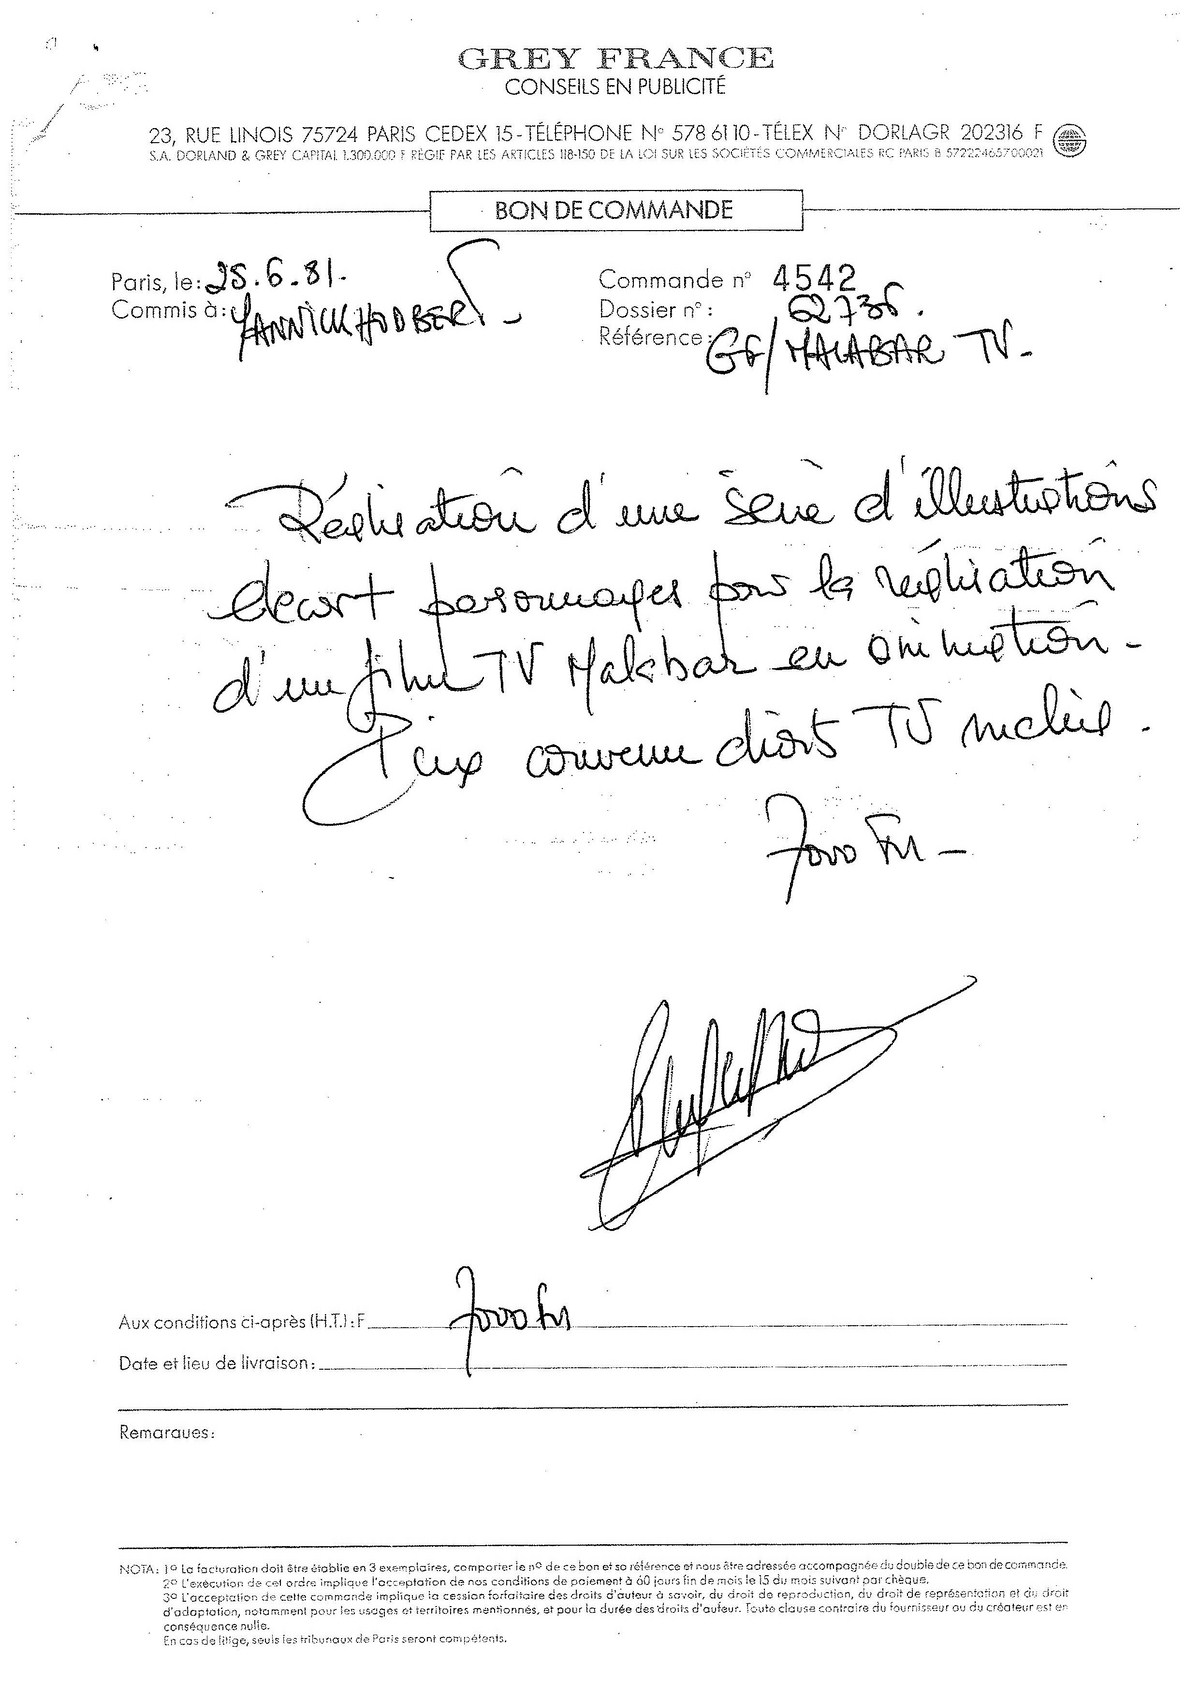 GREY FRANCE
CONSEILS EN PUBLICITÉ
23, RUE LINOIS 75724 PARIS CEDEX 15 - TÉLÉPHONE N° 578 61 10 - TÉLEX N° DORLAGR 202316 F
S.A. DORLAND & GREY CAPITAL 1.300.000 F RÉGIE PAR LES ARTICLES 118-150 DE LA LOI SUR LES SOCIÉTÉS COMMERCIALES RC PARIS B 57222465700021
BON DE COMMANDE
Paris, le: 25.6.81. Commande n° 4542
Commis à: YANNICK HODBERT_ Dossier n°: 62735.
Référence: GF/MALABAR TV_
Réalisation d'une série d'illustrations
décor + personnages pour la réalisation
d'un film TV Malabar en animation -
Prix convenu droits TV inclus.
7000 Frs -
Aux conditions ci-après (H.T.): F 7000 Frs
Date et lieu de livraison:
Remarques:
NOTA: 1° La facturation doit être établie en 3 exemplaires, comporter le n° de ce bon et sa référence et nous être adressée accompagnée du double de ce bon de commande.
2° L'exécution de cet ordre implique l'acceptation de nos conditions de paiement à 60 jours fin de mois le 15 du mois suivant par chèque.
3° L'acceptation de cette commande implique la cession forfaitaire des droits d'auteur à savoir, du droit de reproduction, du droit de représentation et du droit
d'adaptation, notamment pour les usages et territoires mentionnés, et pour la durée des droits d'auteur. Toute clause contraire du fournisseur ou du créateur est en
conséquence nulle.
En cas de litige, seuls les tribunaux de Paris seront compétents.